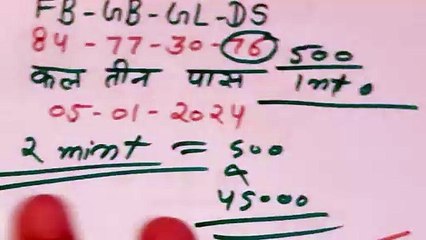 FB-GB-GL-DS
84-77-30-76 500
कल तीन पास 1nt.
05-01-2024
2 mint = 500
45000